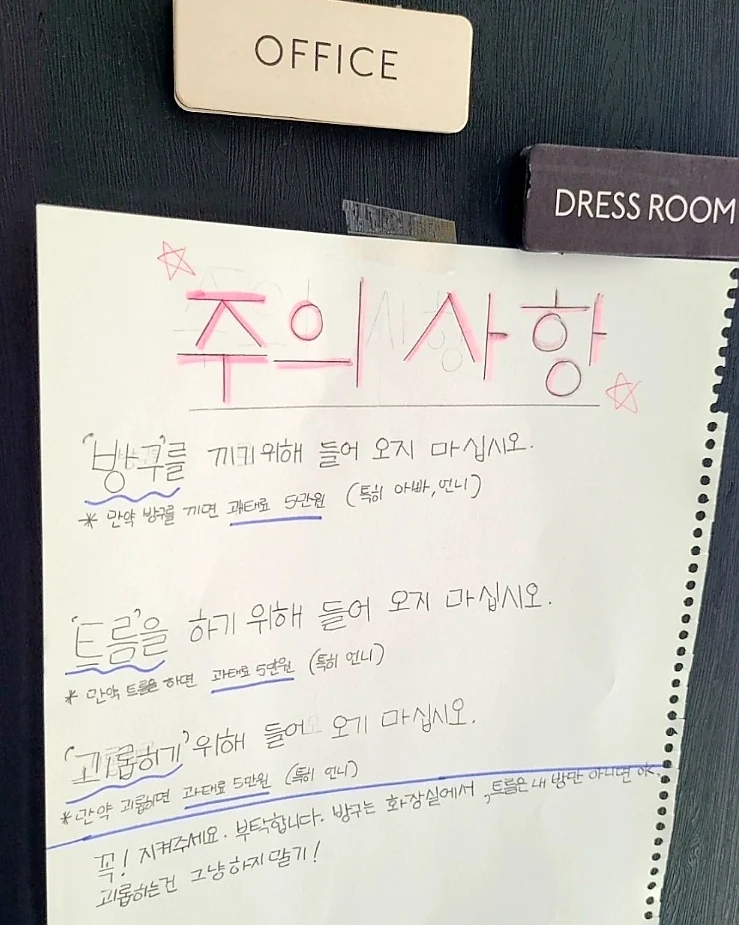 OFFICE
DRESS ROOM
주의 사항
'방구'를 끼기 위해 들어 오지 마십시오.
* 만약 방구를 끼면 과태료 5만원 (특히 아빠, 언니)
'트름'을 하기 위해 들어 오지 마십시오.
* 만약 트름을 하면 과태료 5만원 (특히 언니)
'괴롭히기' 위해 들어 오기 마십시오.
* 만약 괴롭히면 과태료 5만원 (특히 언니)
꼭! 지켜주세요. 부탁합니다. 방구는 화장실에서, 트름은 내 방만 아니면 OK.
괴롭히는건 그냥 하지말기!